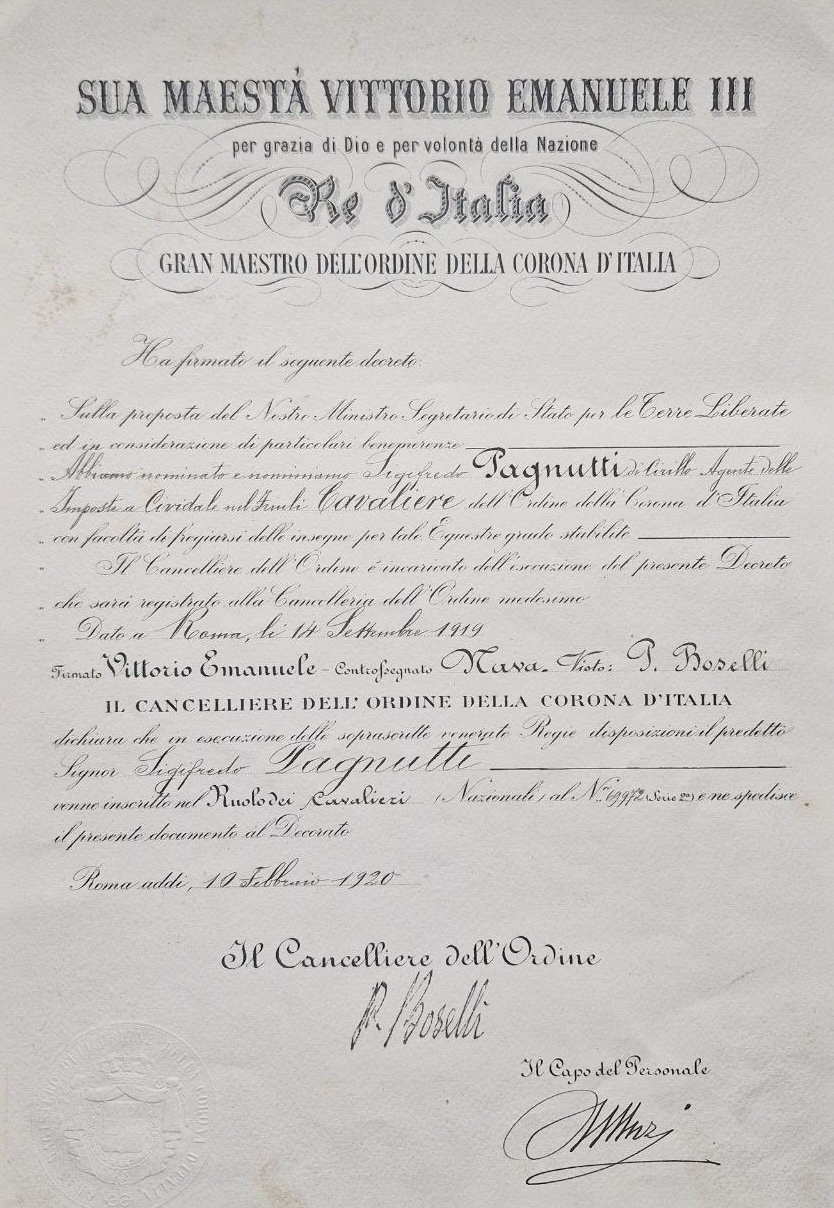 SUA MAESTÀ VITTORIO EMANUELE III
per grazia di Dio e per volontà della Nazione
Re d'Italia
GRAN MAESTRO DELL'ORDINE DELLA CORONA D'ITALIA
Ha firmato il seguente decreto:
„ Sulla proposta del Nostro Ministro Segretario di Stato per le Terre Liberate
„ ed in considerazione di particolari benemerenze
„ Abbiamo nominato e nominiamo Sigifredo Pagnutti di Cirillo Agente delle
„ Imposte a Cividale nel Friuli Cavaliere dell'Ordine della Corona d'Italia
„ con facoltà di fregiarsi delle insegne per tale Equestre grado stabilite
„ Il Cancelliere dell'Ordine è incaricato dell'esecuzione del presente Decreto
„ che sarà registrato alla Cancelleria dell'Ordine medesimo
„ Dato a Roma, li 14 Settembre 1919
Firmato Vittorio Emanuele - Controssegnato Nava. Visto: P. Boselli
IL CANCELLIERE DELL'ORDINE DELLA CORONA D'ITALIA
dichiara che in esecuzione delle soprascritte venerate Regie disposizioni il predetto
Signor Sigifredo Pagnutti
venne inscritto nel Ruolo dei Cavalieri (Nazionali) al N.° 69972 (Serie 2ª) e ne spedisce
il presente documento al Decorato
Roma addì, 10 Febbraio 1920
Il Cancelliere dell'Ordine
P. Boselli
Il Capo del Personale